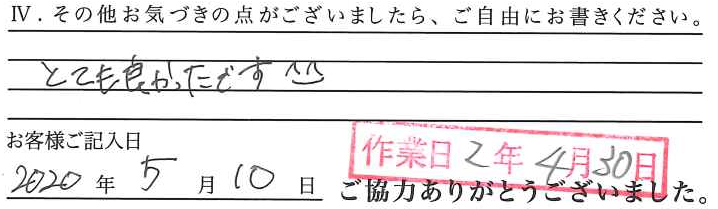 Ⅳ．その他お気づきの点がございましたら、ご自由にお書きください。
とても良かったです ^^
お客様ご記入日
作業日 2年 4月30日
2020 年 5 月 10 日 ご協力ありがとうございました。